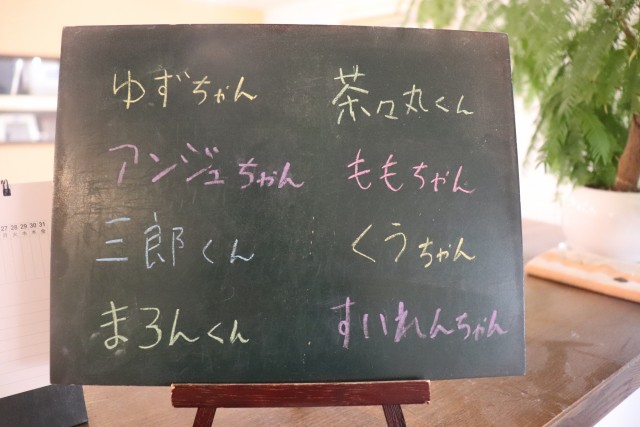 ゆずちゃん
アンジュちゃん
三郎くん
まろんくん
茶々丸くん
ももちゃん
くうちゃん
すいれんちゃん
27 28 29 30 31